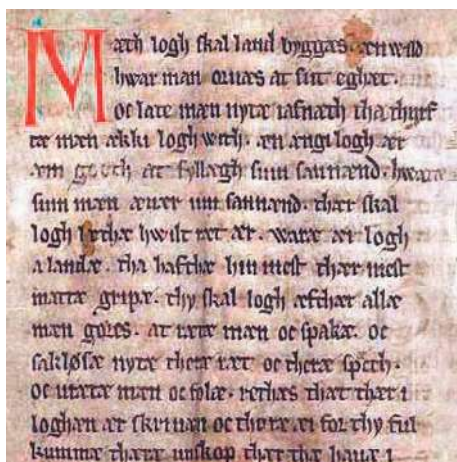 Mæth logh skal land byggæs· æn wild
hwar man oruæs at sit eghæt·
oc late mæn nytæ iafnæth tha thyrf
tæ mæn ækki logh with· æn ængi logh ær
æm gooth at fyllægh sum sannænd· hwaræ
sum mæn æuær um sannænd· thær skal
logh lethæ hwilt ræt ær· waræ æi logh
a landæ· tha hafthæ hin mest thær mest
mattæ gripæ· thy skal logh æfthær allæ
mæn gøres· at rætæ mæn oc spakæ· oc
sakløsæ nytæ theræ ræt oc theræ spech·
oc urætæ mæn oc folæ· rethæs thæt thær i
loghæn ær skriuan oc thoræ æi for thy ful
kummæ theræ unskop thær the hauæ i